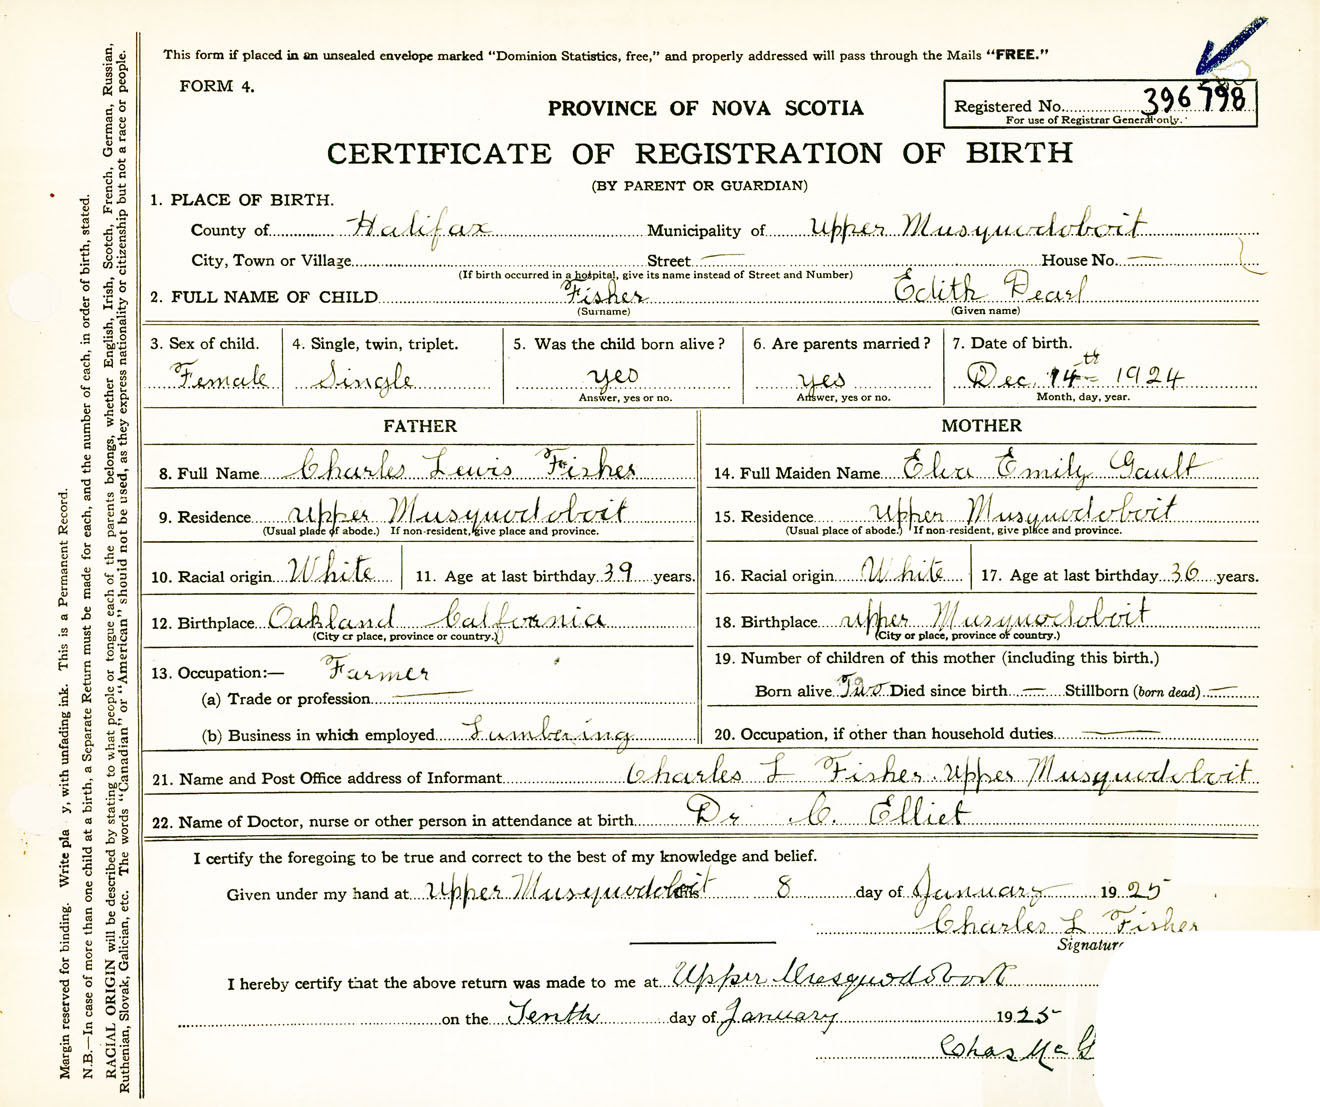 This form if placed in an unsealed envelope marked "Dominion Statistics, free," and properly addressed will pass through the Mails "FREE."
FORM 4.
PROVINCE OF NOVA SCOTIA
Registered No. 396798
For use of Registrar General only.
CERTIFICATE OF REGISTRATION OF BIRTH
(BY PARENT OR GUARDIAN)
1. PLACE OF BIRTH.
County of Halifax Municipality of Upper Musquodoboit
City, Town or Village Street — House No. —
(If birth occurred in a hospital, give its name instead of Street and Number)
2. FULL NAME OF CHILD Fisher Edith Pearl
(Surname) (Given name)
3. Sex of child. 4. Single, twin, triplet. 5. Was the child born alive? 6. Are parents married? 7. Date of birth.
Female Single yes yes Dec. 14th 1924
Answer, yes or no. Answer, yes or no. Month, day, year.
FATHER MOTHER
8. Full Name Charles Lewis Fisher 14. Full Maiden Name Elva Emily Gault
9. Residence Upper Musquodoboit 15. Residence Upper Musquodoboit
(Usual place of abode.) If non-resident, give place and province. (Usual place of abode.) If non-resident, give place and province.
10. Racial origin White 11. Age at last birthday 39 years. 16. Racial origin White 17. Age at last birthday 36 years.
12. Birthplace Oakland California 18. Birthplace Upper Musquodoboit
(City or place, province or country.) (City or place, province or country.)
13. Occupation:— Farmer 19. Number of children of this mother (including this birth.)
(a) Trade or profession — Born alive Two Died since birth — Stillborn (born dead) —
(b) Business in which employed Lumbering 20. Occupation, if other than household duties —
21. Name and Post Office address of Informant Charles L Fisher. Upper Musquodoboit
22. Name of Doctor, nurse or other person in attendance at birth Dr C. Elliet
I certify the foregoing to be true and correct to the best of my knowledge and belief.
Given under my hand at Upper Musquodoboit this 8 day of January 1925
Charles L Fisher
Signature
I hereby certify that the above return was made to me at Upper Musquodoboit
on the Tenth day of January 1925
Chas Mc G
Margin reserved for binding. Write pla y, with unfading ink. This is a Permanent Record.
N.B.—In case of more than one child at a birth, a Separate Return must be made for each, and the number of each, in order of birth, stated.
RACIAL ORIGIN will be described by stating to what people or tongue each of the parents belongs, whether English, Irish, Scotch, French, German, Russian,
Ruthenian, Slovak, Galician, etc. The words "Canadian" or "American" should not be used, as they express nationality or citizenship but not a race or people.